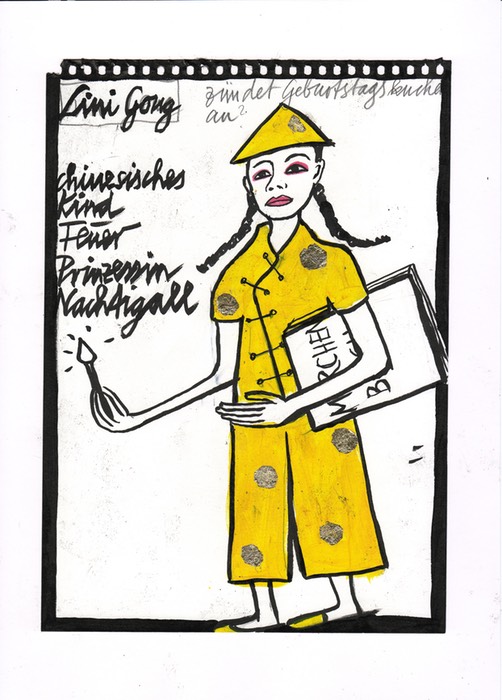 Lini Gong
zündet Geburtstagskuchen
an?
chinesisches
Kind
Feuer
Prinzessin
Nachtigall
MÄRCHEN
B